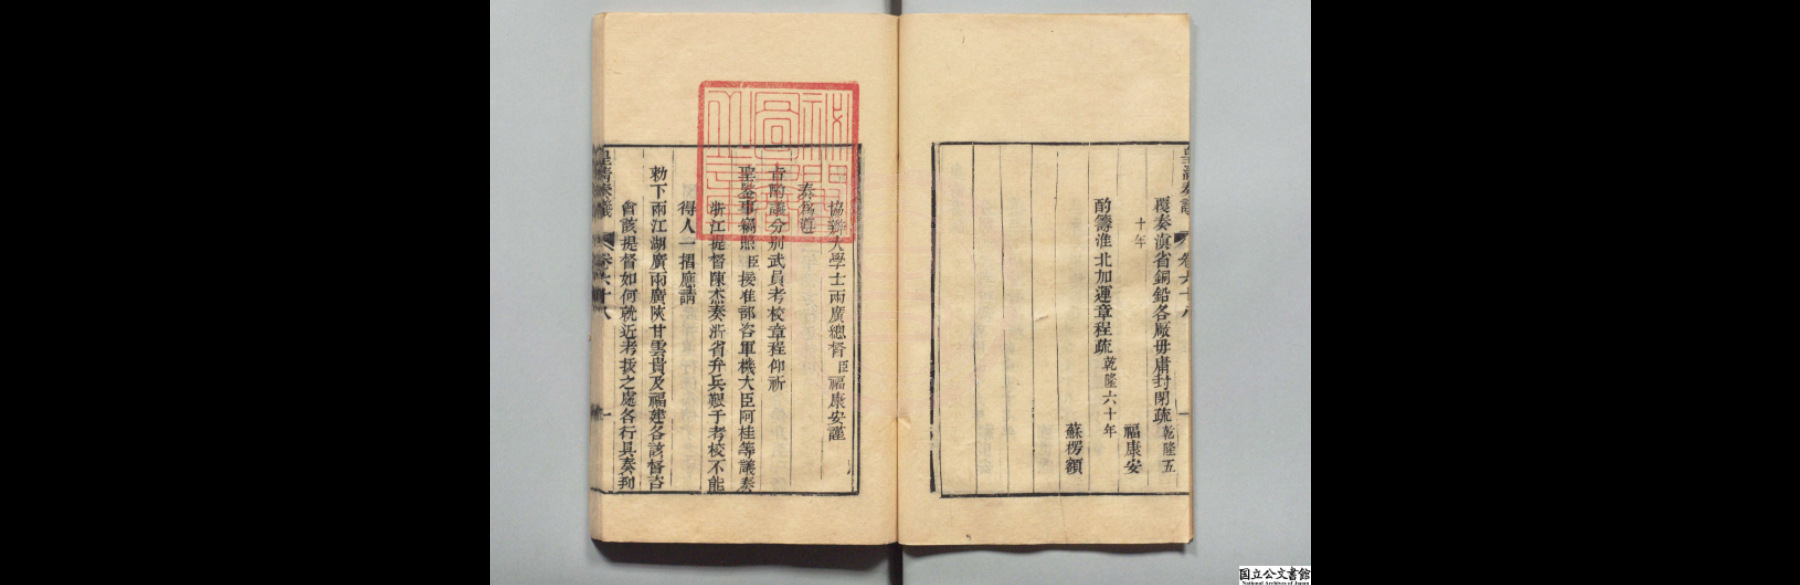 皇清奏議 卷六十八
覆奏滇省銅鉛各厰毋庸封閉疏乾隆五
十年
福康安
酌籌淮北加運章程疏乾隆六十年
蘇楞額
協辦大學士兩廣總督臣福康安謹
奏爲遵
旨酌議分別武員考校章程仰祈
聖鑒事竊照臣接准部咨軍機大臣阿桂等議奏
浙江提督陳杰奏浙省弁兵艱于考校不能
得人一摺應請
勅下兩江湖廣兩廣陝甘雲貴及福建各該督咨
會該提督如何就近考拔之處各行具奏到
皇清奏議 卷六十八 一
国立公文書館
National Archives of Japan